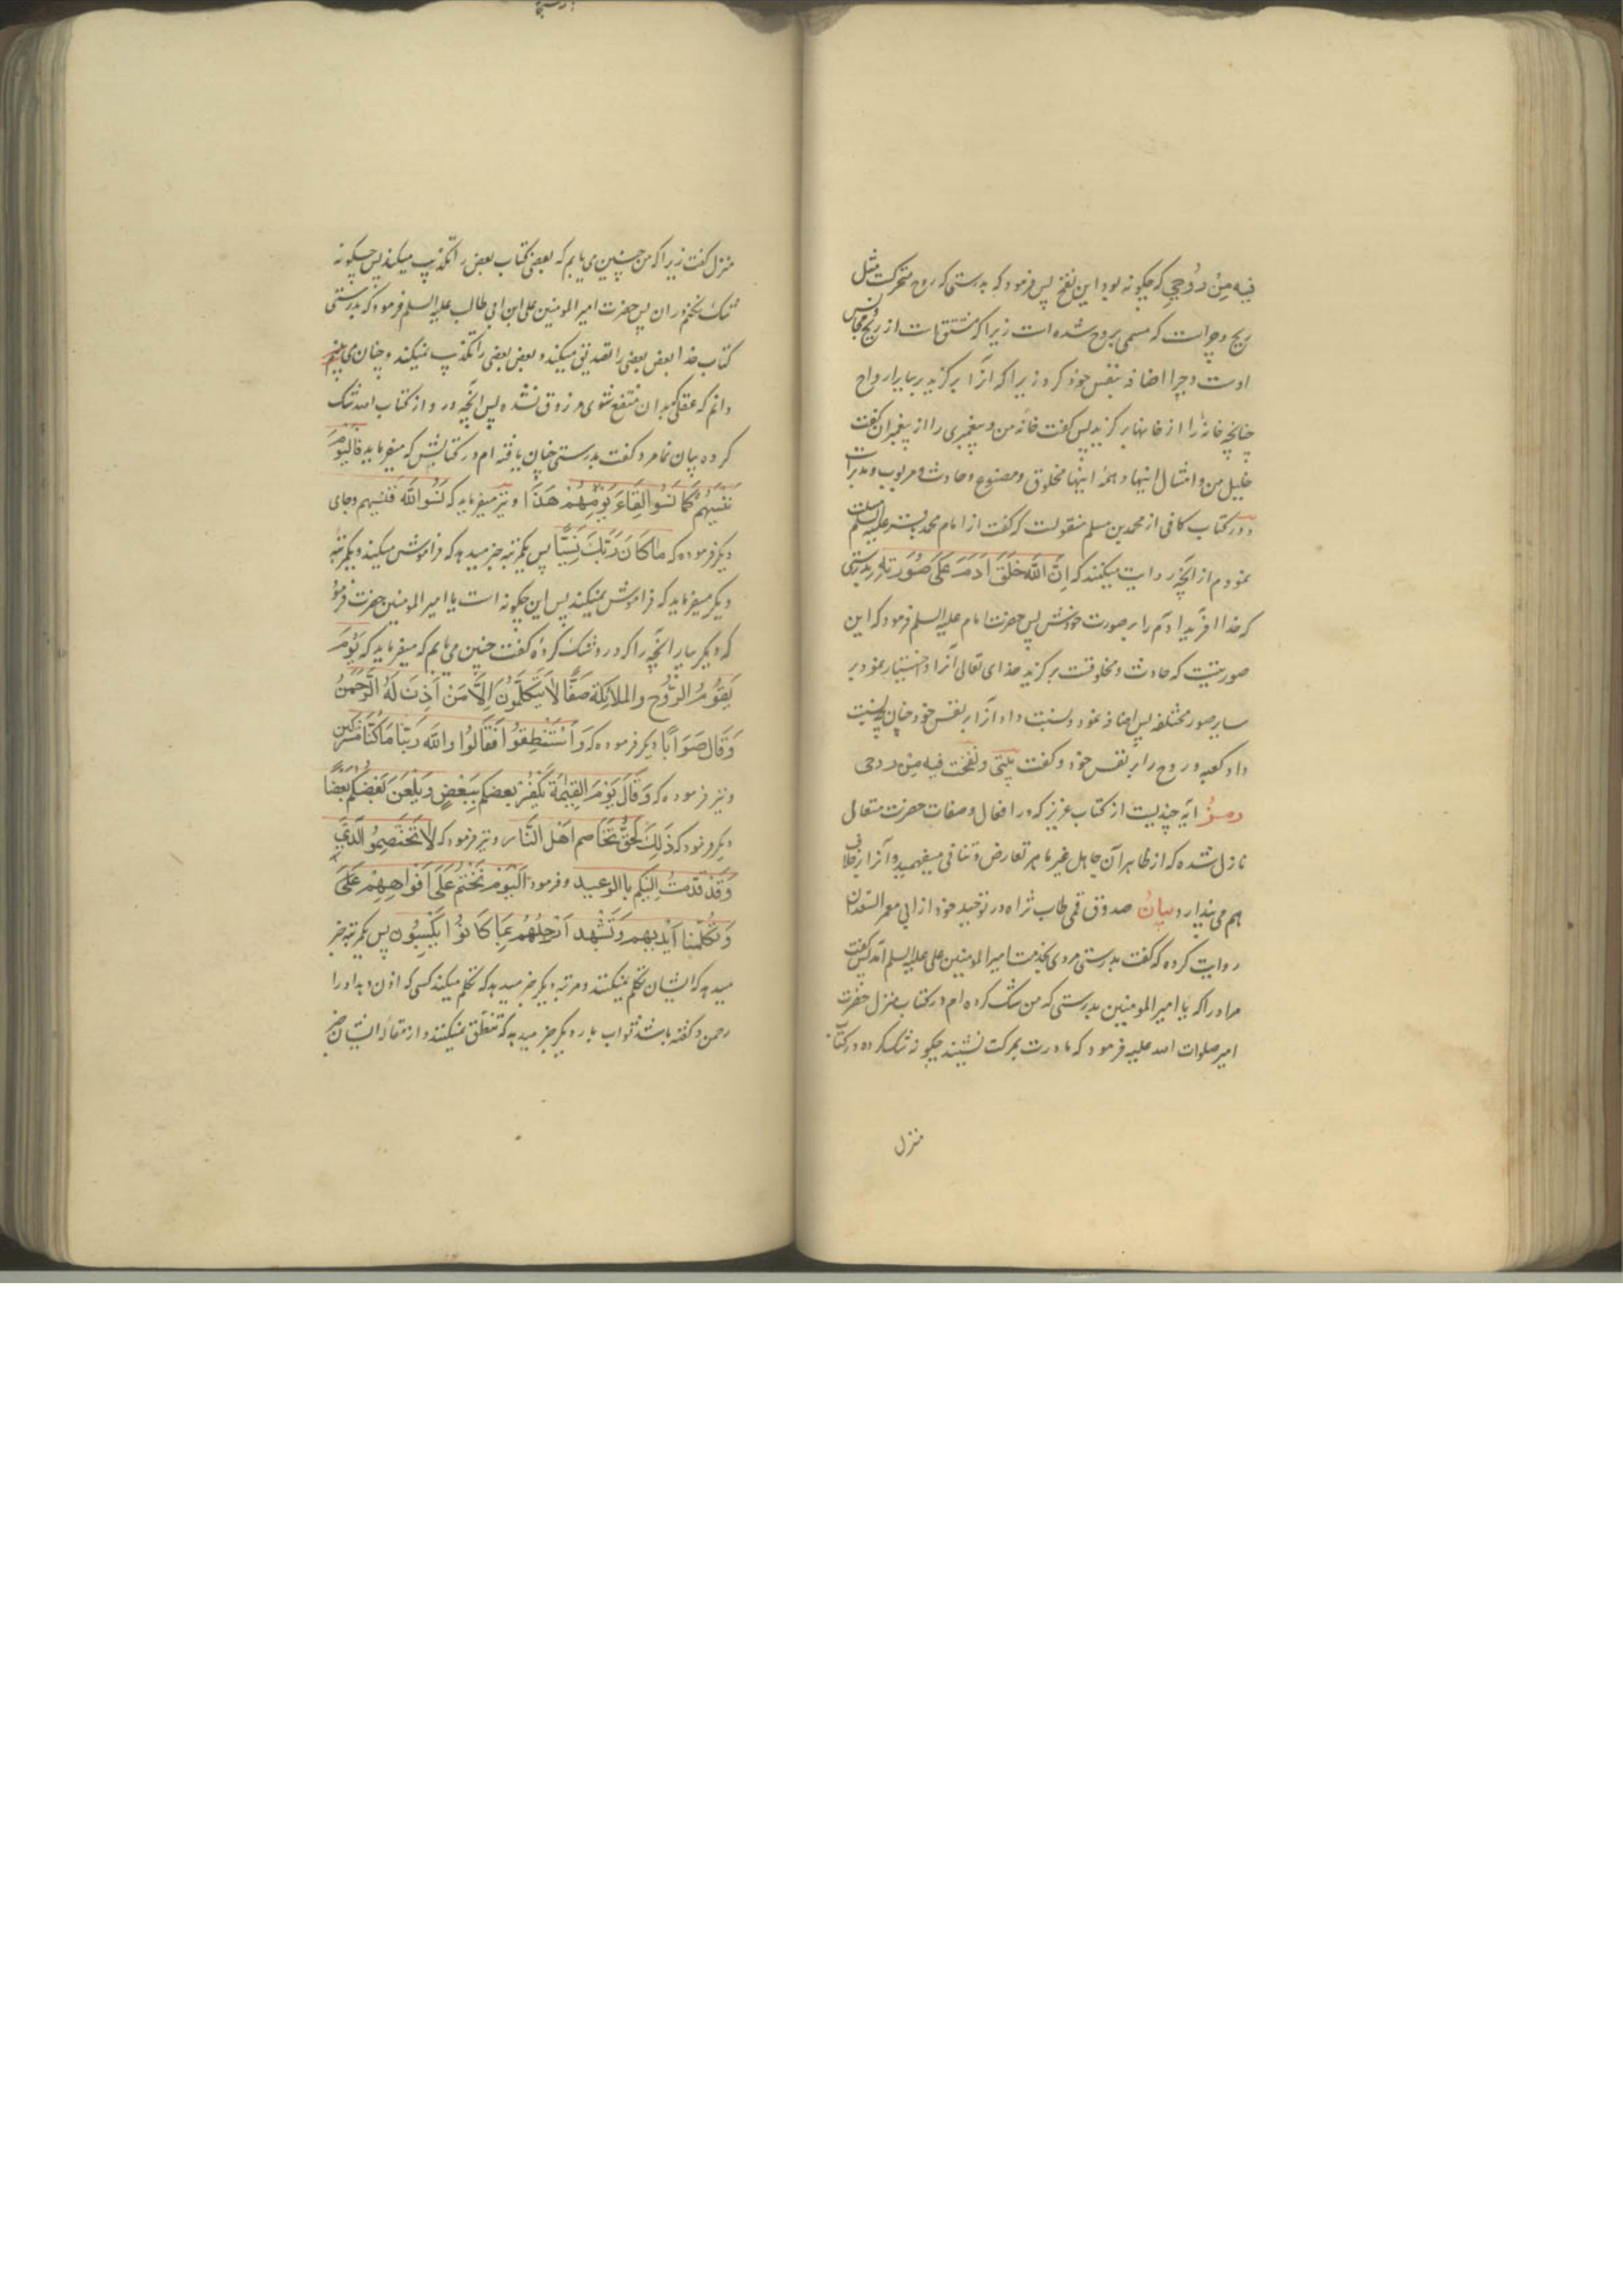 فیه مِنْ رُوحِی که چگونه بود این نفخ پس فرمود که بدرستی که روح متحرکست مثل
ریح و چراست که مسمی بروح شده است زیرا که مشتق است از ریح و مجانس
اوست و چرا اضافه بنفس خود کرد زیرا که آنرا برگزید بر سایر ارواح
چنانچه خانه را از خانها برگزید پس گفت خانه من و پیغمبری را از پیغمبران گفت
خلیل من و امثال اینها و همه اینها مخلوق و مصنوع و حادث و مربوب و مدبرات
و در کتاب کافی از محمد بن مسلم منقولست که گفت از امام محمد باقر علیه السلم مسئلت
نمودم از آنچه روایت میکنند که اِنَّ اللّٰهَ خَلَقَ اٰدَمَ عَلیٰ صُورَتِهِ بدرستی
که خدا افرید ادم را بر صورت خودش پس حضرت امام علیه السلم فرمود که این
صورتیست که حادث و مخلوقست برگزید خدای تعالی آنرا و اختیار نمود بر
سایر صور مختلفه پس اضافه نمود و نسبت داد آنرا بر نفس خود چنان چه نسبت
داد کعبه و روح را بر نفس خود و گفت بَیْتِی و نَفَخْت فیه مِن روحی
رمزٌ آیه چندیست از کتاب عزیز که در افعال و صفات حضرت متعال
نازل شده که از ظاهر آن جاهل غیر ماهر تعارض و تنافی میفهمد و آنرا خلاف
هم می پندارد بیانٌ صدوق قمی طاب ثراه در توحید خود از ابی معمر السعدان
روایت کرده که گفت بدرستی مردی بخدمت امیر المومنین علی علیه السلم آمد پس گفت
مر او را که یا امیر المومنین بدرستی که من شک کرده ام در کتاب منزل حضرت
امیر صلوات الله علیه فرمود که مادرت بمرگت نشیند چگونه شک کرده در کتاب
منزل
منزل گفت زیرا که من چنین می یابم که بعضی کتاب بعض را تکذیب میکند پس چگونه
شک نکنم در ان پس حضرت امیر المومنین علی ابن ابی طالب علیه السلم فرمود که بدرستی
کتاب خدا بعض بعضی را تصدیق میکند و بعض بعضی را تکذیب نمیکند و چنان می
دانم که عقلی که بدان منتفع شوی مرزوق نشده پس آنچه در و از کتاب الله شک
کرده بیان نما مرد گفت بدرستی چنان یافته ام در کتابش که میفرماید فَالْیَوْمَ
نَنْسٰیهُمْ کَمٰا نَسُوا لِقٰاءَ یَوْمِهِمْ هٰذٰا و نیز میفرماید که نَسُوا اللّٰهَ فَنَسِیَهم و جای
دیگر فرموده که مٰا کٰانَ رَبُّکَ نَسِیًّا پس یکمرتبه خبر میدهد که فراموش میکند و یکمرتبه
دیگر میفرماید که فراموش نمیکند پس این چگونه است یا امیر المومنین حضرت فرمود
که دیگر بیار آنچه را که در و شک کرده گفت چنین می یابم که میفرماید که یَوْمَ
یَقُومُ الرُّوحُ والملائکة صَفًّا لاٰ یَتَکَلَّمُونَ اِلاّٰ مَنْ اَذِنَ لَهُ الرَّحْمٰنُ
وَقٰالَ صَوٰابًا دیگر فرموده که وَاسْتُنْطِقُوا فَقٰالُوا وَاللّٰه رَبِّنٰا مٰا کُنّٰا مُشْرِکین
و نیز فرموده که وَقٰالَ یَوْمَ القِیٰمَة یَکْفُرُ بعضکم بِبَعْضٍ وَیَلْعَنُ بَعْضُکُمْ بَعْضًا
دیگر فرمود که ذٰلِکَ لَحَقٌّ تَخٰاصم اَهْلِ النّٰارِ و نیز فرمود که لاٰ تَخْتَصِمُوا لَدَیَّ
وَقَدْ قَدَّمْتُ اِلَیکُم باالوعید و فرمود اَلْیَوْمَ نَخْتِمُ عَلیٰ اَفْوٰاهِهِمْ عَلیٰ
وَتُکَلِّمُنٰا اَیْدیهم وَتَشْهَد اَرْجُلُهُمْ بِمٰا کٰانُوا یَکْسِبُون پس یکمرتبه خبر
میدهد که ایشان تکلم نمیکنند و مرتبه دیگر خبر میدهد که تکلم میکند کسی که اذن دهد او را
رحمن و گفته باشد ثواب بار دیگر خبر میدهد که تنطق نمیکنند و از مقاله ایشان خبر